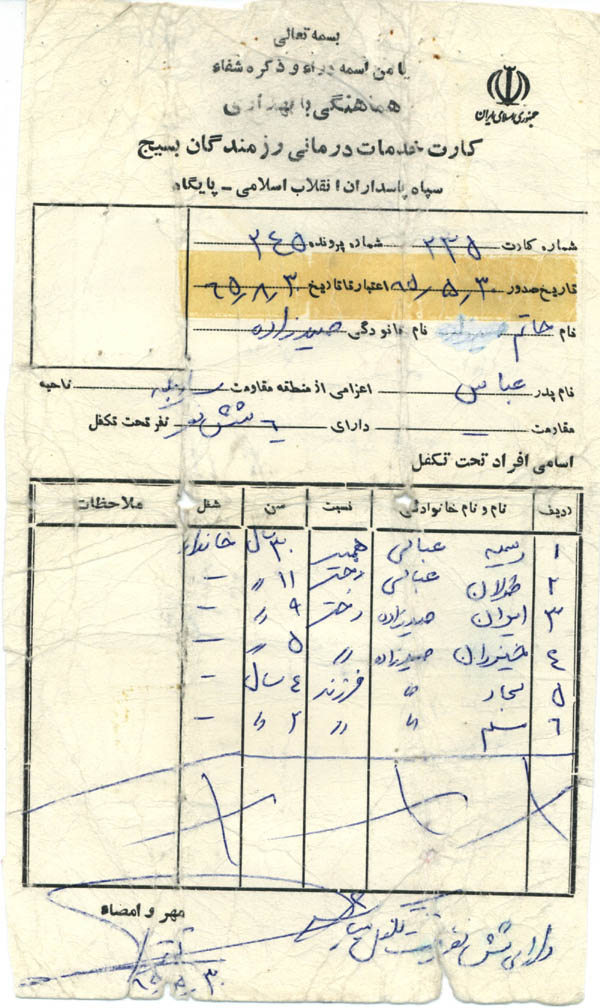 بسمه تعالی
یا من اسمه دواء و ذکره شفاء
جمهوری اسلامی ایران
هماهنگی با بهداری
کارت خدمات درمانی رزمندگان بسیج
سپاه پاسداران انقلاب اسلامی - پایگاه
شماره کارت ۲۳۵ شماره پرونده ۲٤۵
تاریخ صدور ۶۵/۵/۳۰ اعتبار تا تاریخ ۶۵/۸/۳۰
نام حاتم نام خانوادگی صیدزاده
نام پدر عباس اعزامی از منطقه مقاومت ناحیه
مقاومت - دارای ٦ شش نفر نفر تحت تکفل
اسامی افراد تحت تکفل
ردیف نام و نام خانوادگی نسبت سن شغل ملاحظات
۱ عباسی همسر ۳۰ سال خانه‌دار
۲ طلان عباسی دختر ۱۱ " -
۳ ایران صیدزاده دختر ۹ " -
٤ خیزران صیدزاده " ۵ " -
۵ " فرزند ٤ سال -
٦ " " ۲ " -
مهر و امضاء
دارای شش نفر تحت تکفل